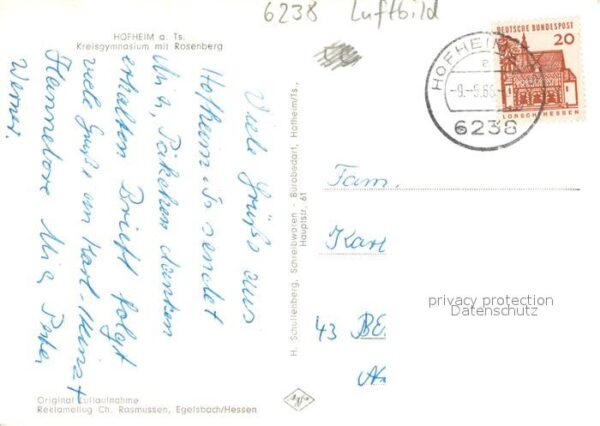 6238 Luftbild
HOFHEIM a. Ts.
Kreisgymnasium mit Rosenberg
DEUTSCHE BUNDESPOST
20
LORSCH/HESSEN
HOFHEIM
a
-9.-9.66-
6238
Viele Grüße aus
Hofheim Ts sendet
Päkchen danken
erhalten Brief folgt
viele Grüße an Karl-Heinz
Hannelore Peter
Werner.
H. Schultenberg, Schreibwaren - Bürobedarf, Hofheim/Ts.,
Hauptstr. 61
Fam.
Karl
43 BE
privacy protection
Datenschutz
Original Luftaufnahme
Reklameflug Ch. Rasmussen, Egelsbach/Hessen